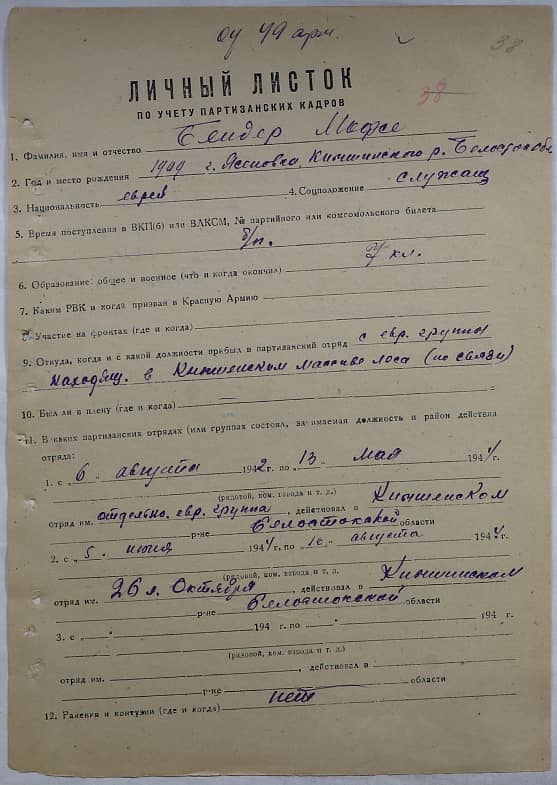 38
38
ЛИЧНЫЙ ЛИСТОК
ПО УЧЕТУ ПАРТИЗАНСКИХ КАДРОВ
1. Фамилия, имя и отчество Бендер
2. Год и место рождения 1909 г. Ясеновка, Кнышинского р. Белостокск
3. Национальность еврей 4. Соцположение служащ
5. Время поступления в ВКП(б) или ВЛКСМ, № партийного или комсомольского билета
б/п.
6. Образование: общее и военное (что и когда окончил) 7 кл.
7. Каким РВК и когда призван в Красную Армию
8. Участие на фронтах (где и когда)
9. Откуда, когда и с какой должности прибыл в партизанский отряд с евр. группы
находящ. в Кнышенском массиве леса (по связи)
10. Был ли в плену (где и когда)
11. В каких партизанских отрядах (или группах состоял, занимаемая должность и район действия
отряда:
1. с „6„ августа 1942 г. по „13„ мая 1944 г.
(рядовой, ком. взвода и т. д.)
отряд им. отдельно. евр. группа, действовал в Кнышенском
р-не Белостокской области
2. с „5„ июня 1944 г. по „16„ августа 1944 г.
(рядовой, ком. взвода и т. д.
отряд им. 26 л. Октября, действовал в Кнышинском
р-не Белостокской области
3. с „ „ 194 г. по „ „ 194 г.
(рядовой, ком. взвода и т. д.)
отряд им. , действовал в
р-не области
12. Ранения и контузии (где и когда) нет